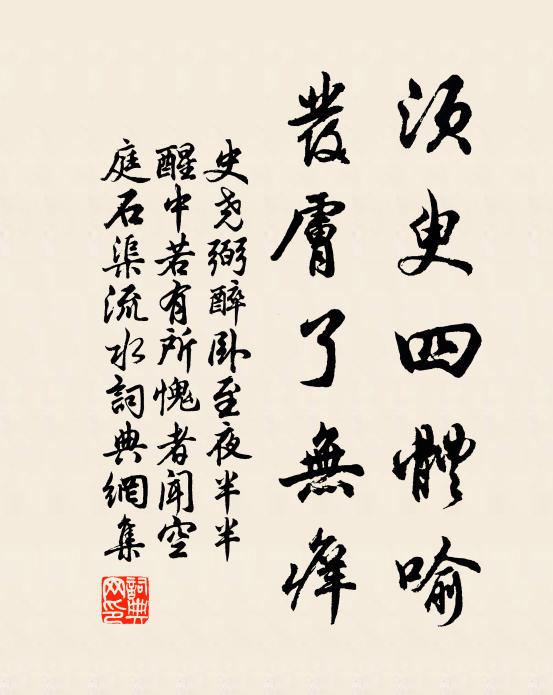 須臾四體喻
發膚了無癢
史尧弼醉卧至夜半半
醒中若有所愧者闻空
庭石渠流水詞典網集
詞典網印